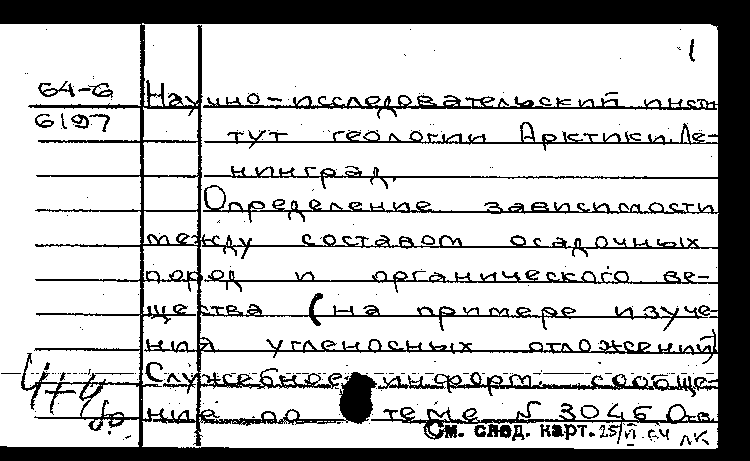 1
64-6
6197
Научно-исследовательский инсти
тут геологии Арктики. Ле-
нинград.
Определение зависимости
между составом осадочных
пород и органического ве-
щества (на примере изуче-
ния угленосных отложений)
Служебное информ. сообще-
ние по теме № 3046 Отв.
См. след. карт. 25/VI 64 ЛК